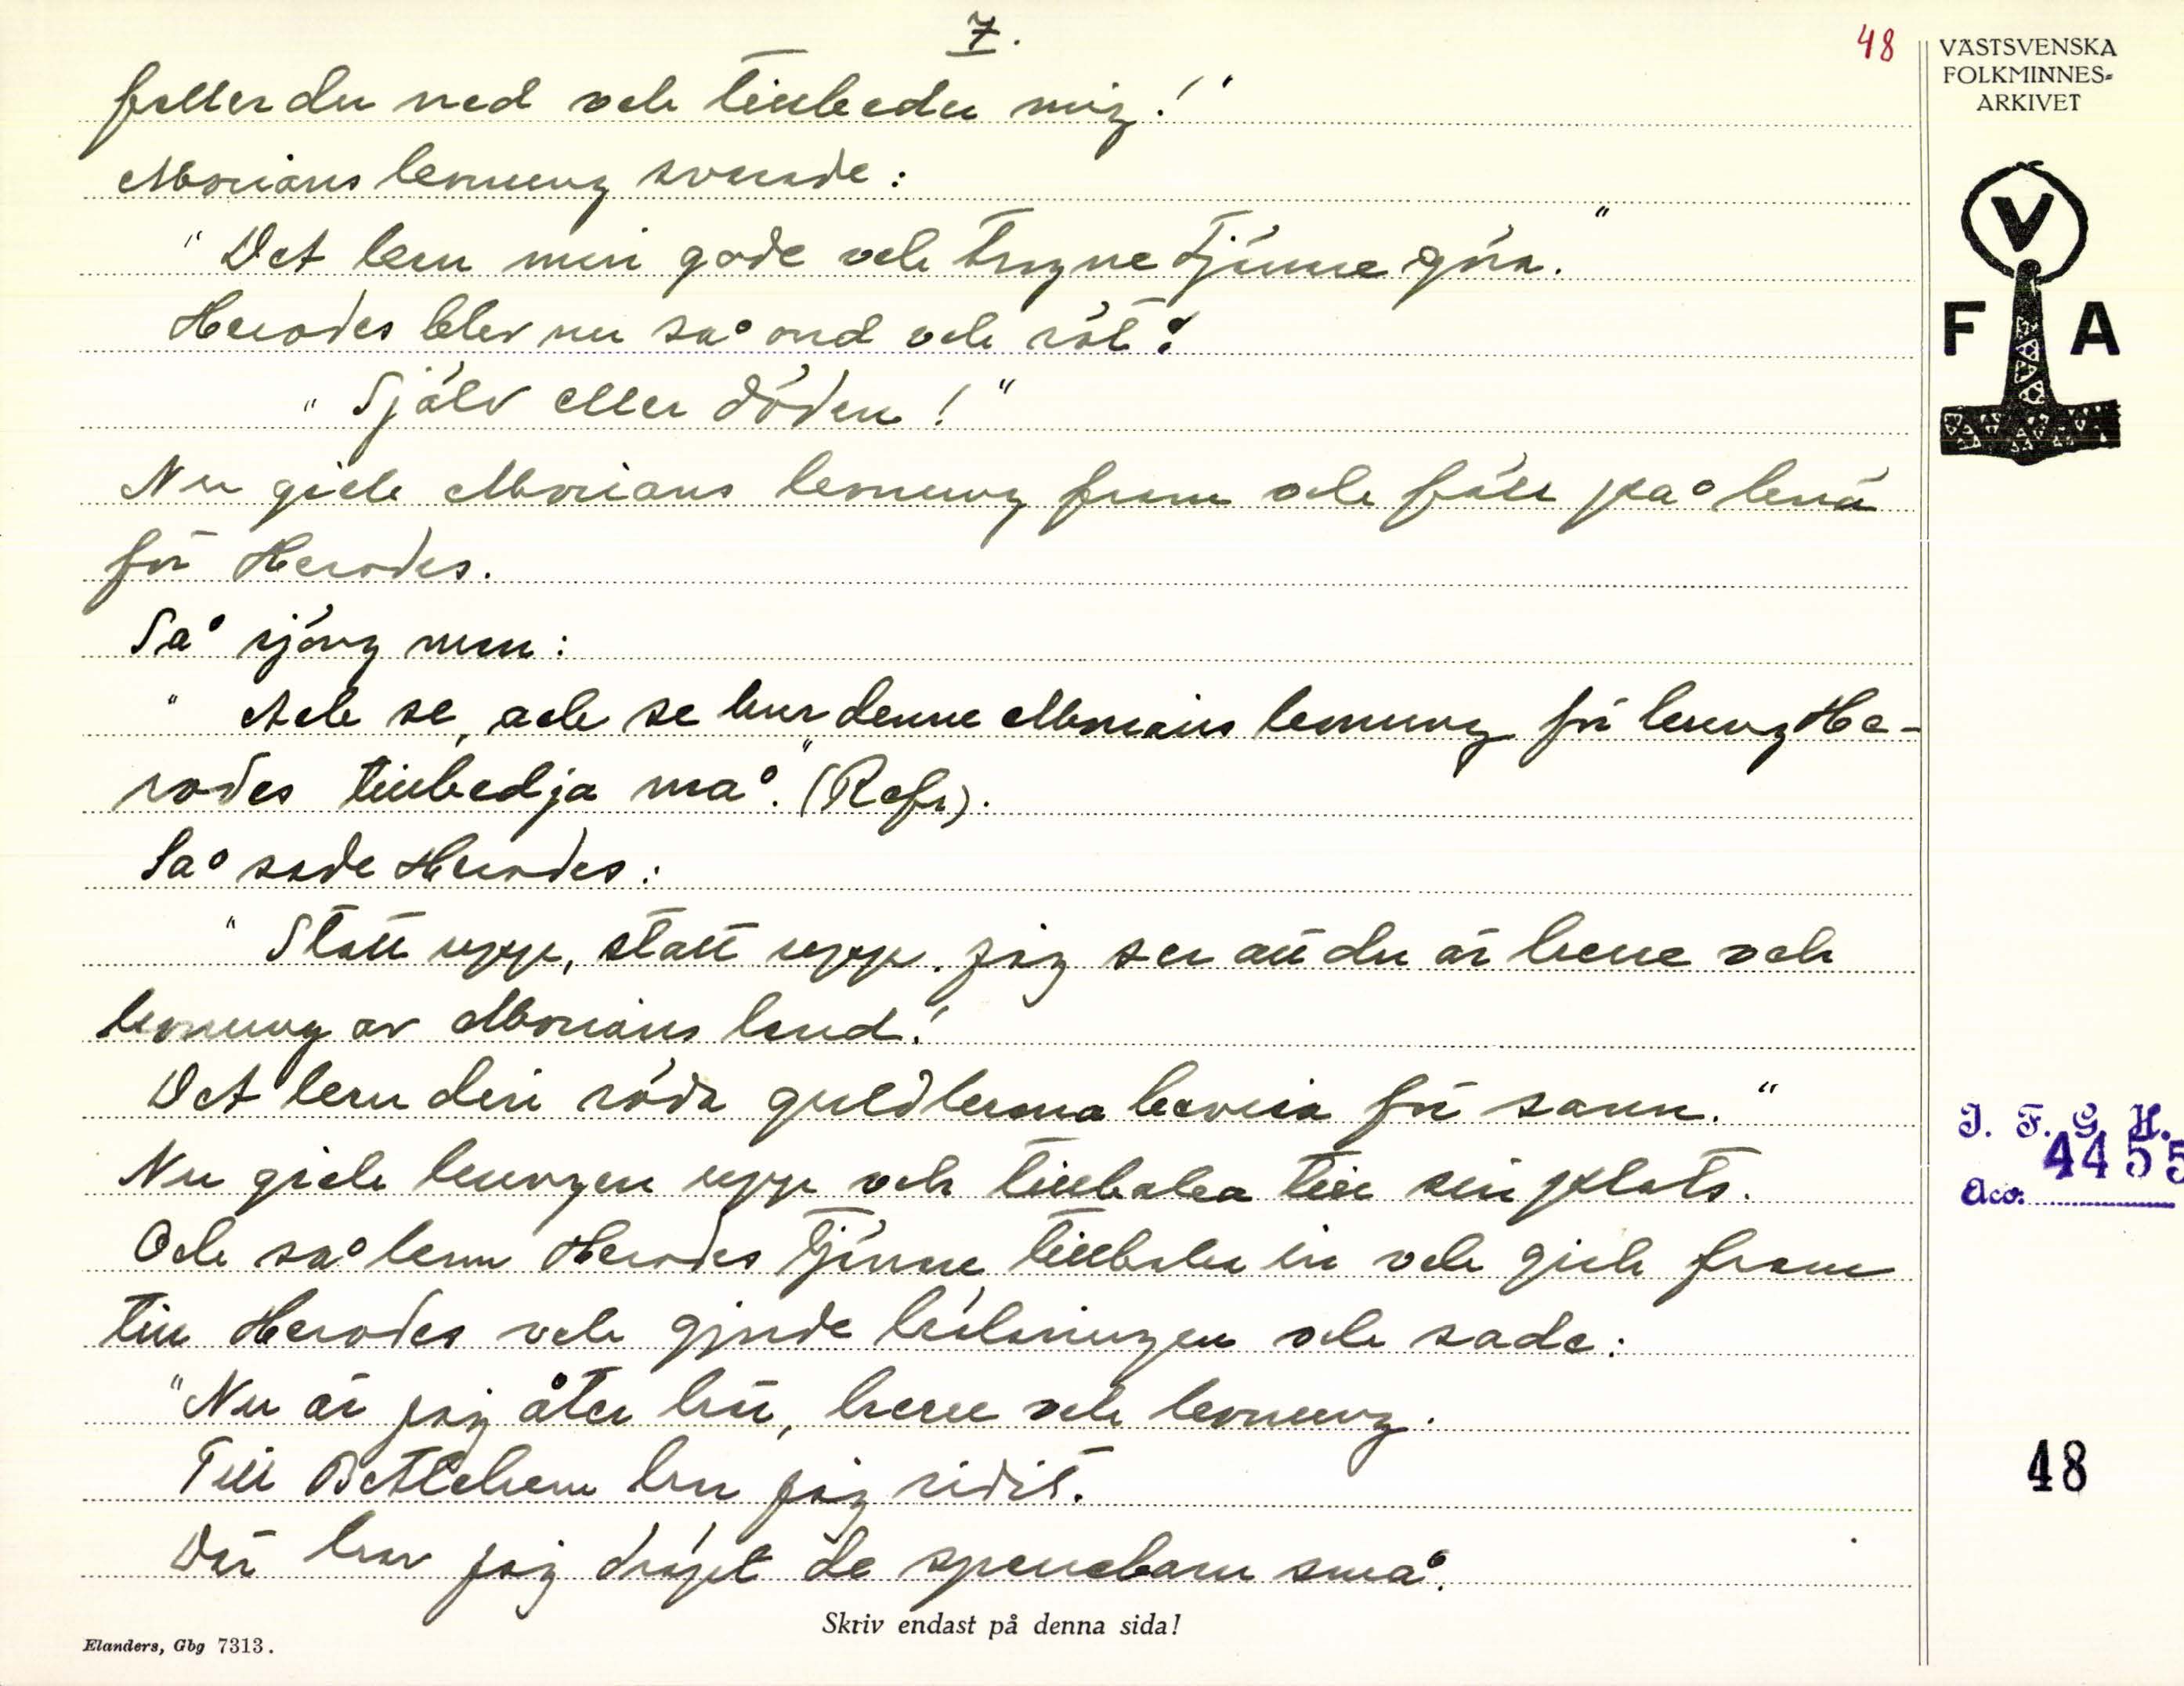 7.
48
VÄSTSVENSKA
FOLKMINNES=
ARKIVET
faller du ned och tillbeder mig!"
Morians konung svarade:
"Det kan min gode och trogne tjänare göra."
V
F A
Herodes blev nu så ond och röt:
"Själv eller döden!"
Nu gick Morians konung fram och föll på knä
för Herodes.
Så sjöng man:
"Ack se, ack se hur denne Morians konung för kung He-
rodes tillbedja må." (Refr).
Så sade Herodes:
"Statt upp, statt upp. Jag ser att du är herre och
konung av Morians land!
Det kan din röda guldkrona bevisa för sann."
J. F. G. H.
4455
Acc:
Nu gick kungen upp och tillbaka till sin plats.
Och så kom Herodes tjänare tillbaka in och gick fram
till Herodes och gjorde hälsningen och sade:
"Nu är jag åter här, herre och konung.
Till Betlehem har jag ridit.
48
Där har jag dräpt de spenabarn små.
Skriv endast på denna sida!
Elanders, Gbg 7313.